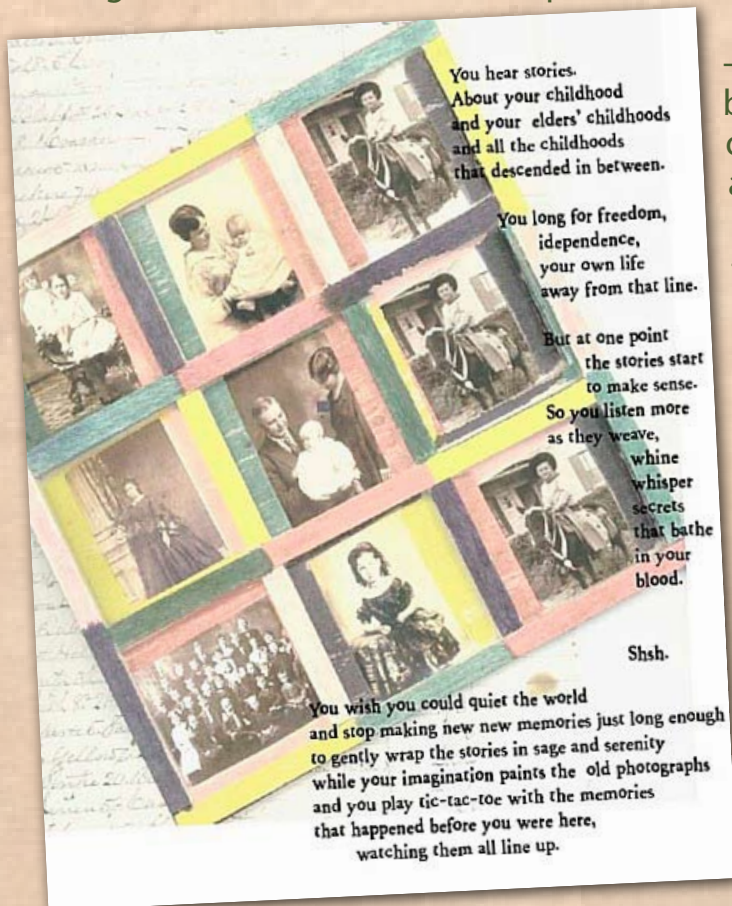 You hear stories.
About your childhood
and your elders' childhoods
and all the childhoods
that descended in between.
You long for freedom,
idependence,
your own life
away from that line.
But at one point
the stories start
to make sense.
So you listen more
as they weave,
whine
whisper
secrets
that bathe
in your
blood.
Shsh.
You wish you could quiet the world
and stop making new new memories just long enough
to gently wrap the stories in sage and serenity
while your imagination paints the old photographs
and you play tic-tac-toe with the memories
that happened before you were here,
watching them all line up.